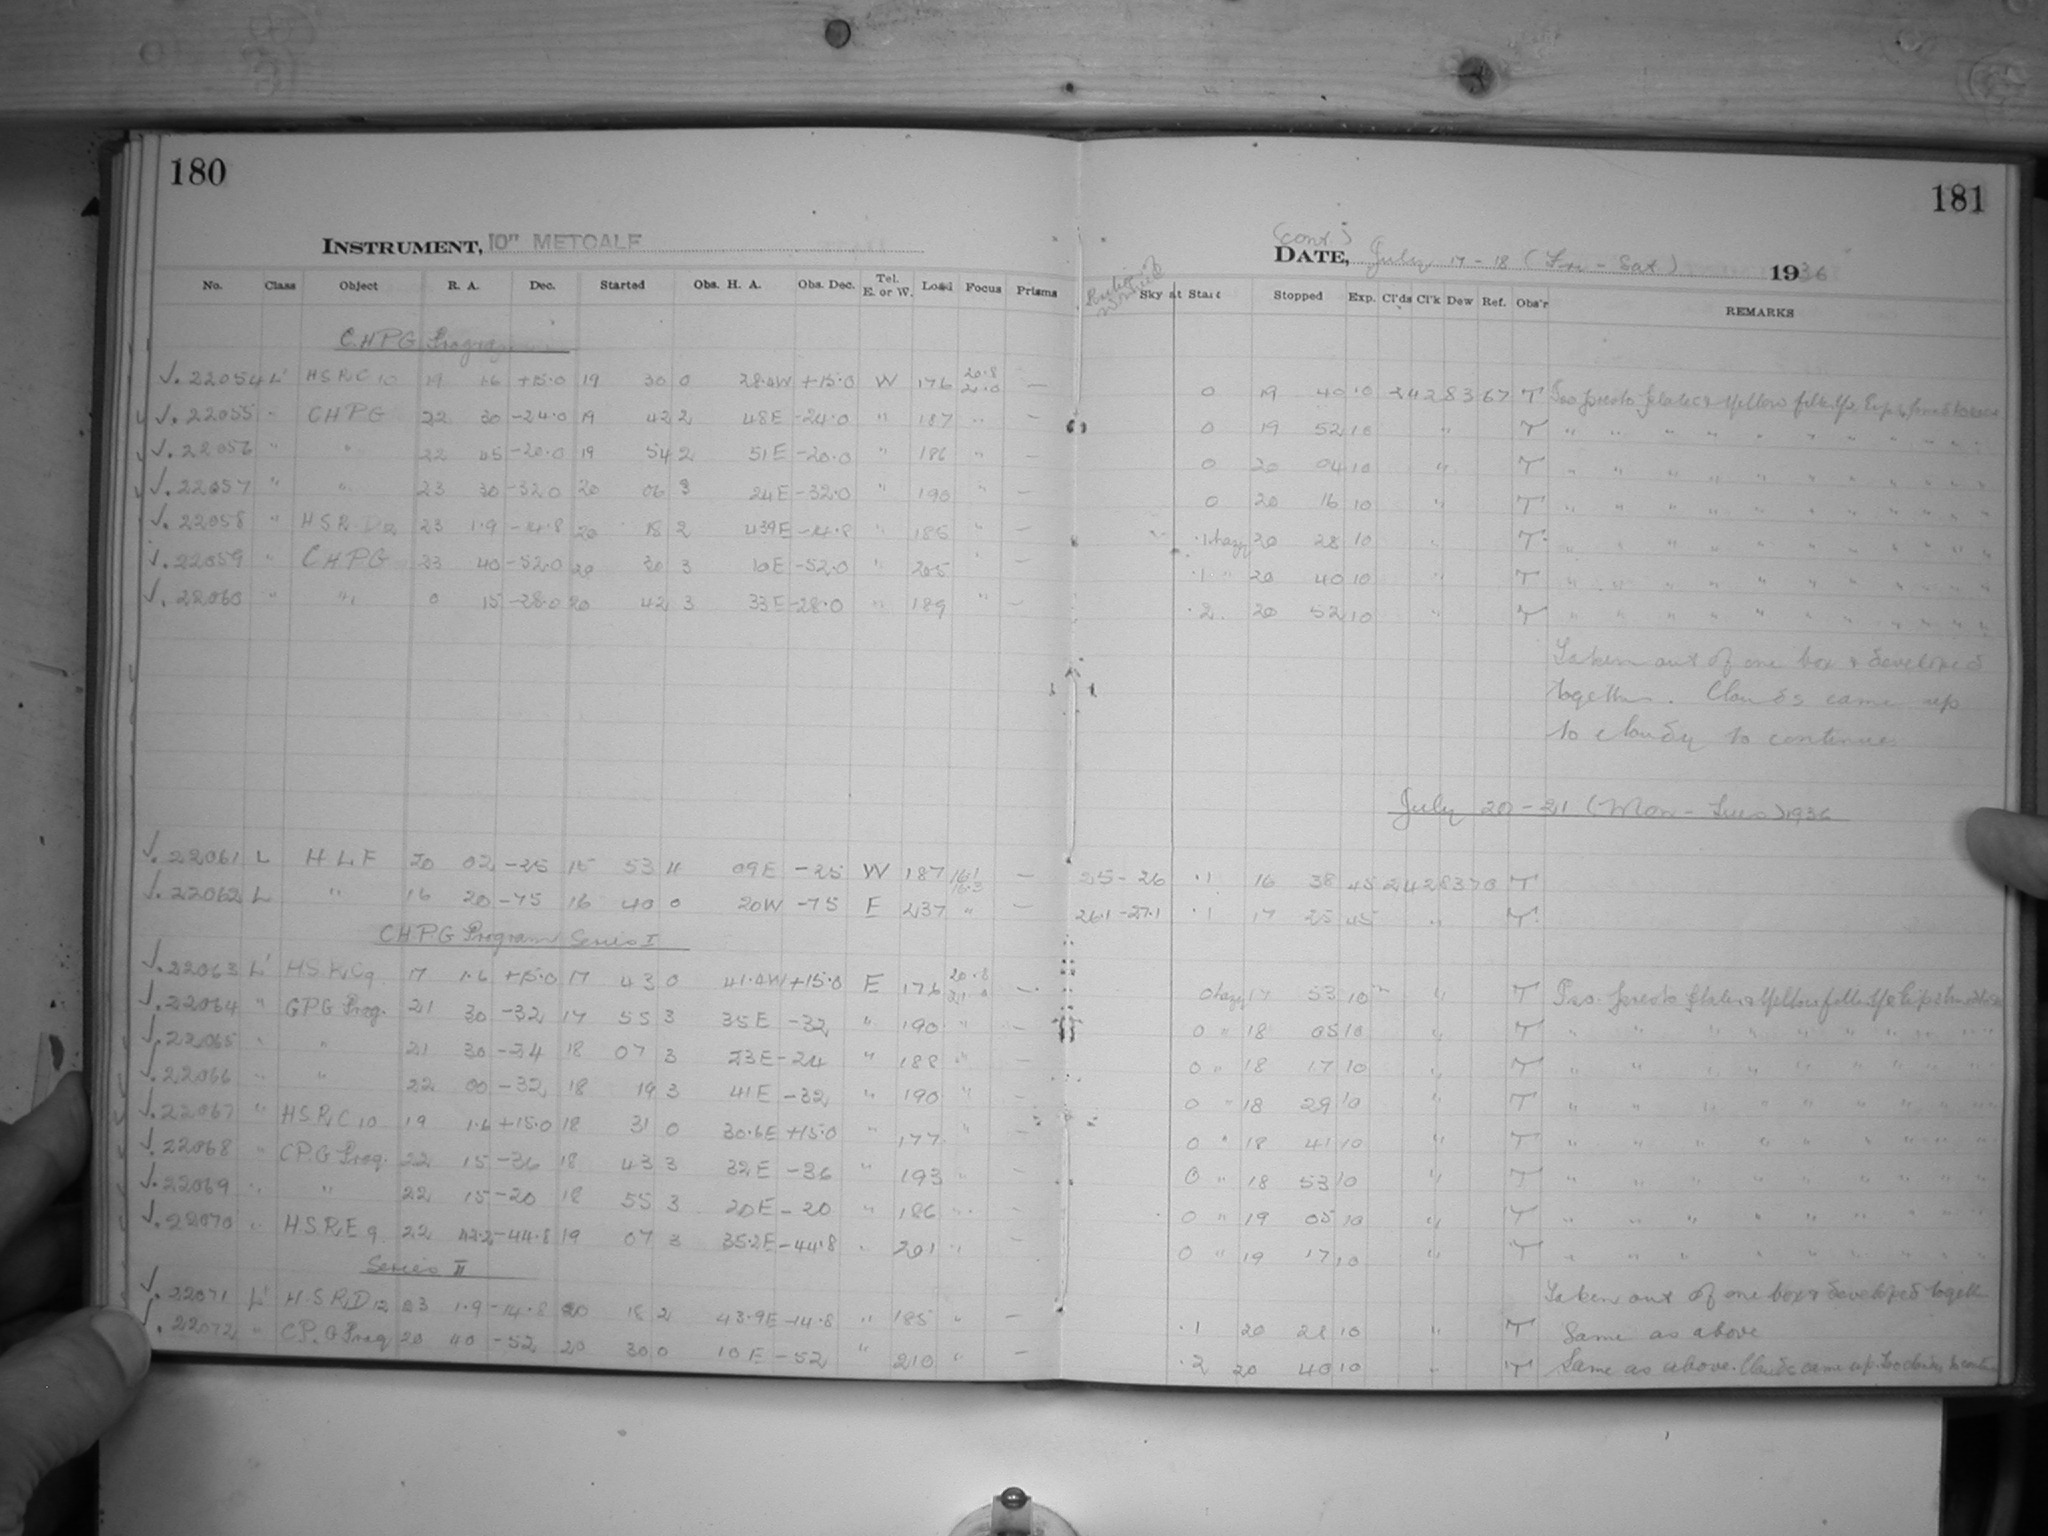 180
INSTRUMENT, 10" METCALF
No. Class Object R. A. Dec. Started Obs. H. A. Obs. Dec. Tel. E. or W. Load Focus Prisms
CHPG Program
J. 22054 L' HSR C10 19 1.6 +15.0 19 30 0 28.0W +15.0 W 176 20.8 21.0 —
J. 22055 " CHPG 22 30 -24.0 19 42 2 48E -24.0 " 187 " —
J. 22056 " " 22 45 -20.0 19 54 2 51E -20.0 " 186 " —
J. 22057 " " 23 30 -32.0 20 06 3 24E -32.0 " 190 " —
J. 22058 " HSR D12 23 1.9 -14.8 20 18 2 43.9E -14.8 " 185 " —
J. 22059 " CHPG 23 40 -52.0 20 30 3 10E -52.0 " 205 ' —
J. 22060 " " 0 15 -28.0 20 42 3 33E -28.0 " 189 " —
J. 22061 L HLF 20 02 -25 15 53 11 09E -25 W 187 16.1 16.3 —
J. 22062 L " 16 20 -75 16 40 0 20W -75 E 237 " —
CHPG Program Series I
J. 22063 L' HSR C9 17 1.6 +15.0 17 43 0 41.0W +15.0 E 176 20.8 21.0 —
J. 22064 " CPG Prog. 21 30 -32 17 55 3 35E -32 " 190 " —
J. 22065 " " 21 30 -24 18 07 3 23E -24 " 188 " —
J. 22066 " " 22 00 -32 18 19 3 41E -32 " 190 " —
J. 22067 " HSR C10 19 1.6 +15.0 18 31 0 30.6E +15.0 " 177 " —
J. 22068 " CPG Prog. 22 15 -36 18 43 3 32E -36 " 193 " —
J. 22069 " " 22 15 -20 18 55 3 20E -20 " 186 " —
J. 22070 " HSR E9 22 42.2 -44.8 19 07 3 35.2E -44.8 " 201 " —
Series II
J. 22071 L' HSR D12 23 1.9 -14.8 20 18 2 43.9E -14.8 " 185 " —
J. 22072 " CP.G Prog 20 40 -52 20 30 0 10E -52 " 210 " —
181
(cont.)
DATE, July 17-18 (Fri - Sat) 1936
Sky at Start Stopped Exp. Cl'ds Cl'k Dew Ref. Obs'r REMARKS
0 19 40 10 24 28 3 67 T Iso presto plates & Yellow filter
0 19 52 10 " T " " " "
0 20 04 10 " T " " " "
0 20 16 10 " T " " " "
.1 hazy 20 28 10 " T " " " "
.1 " 20 40 10 " T " " " "
.2 20 52 10 " T " " " "
Taken out of one box & developed
together. Clouds came up
to cloudy to continue
July 20-21 (Mon - Tues) 1936
25 - 26 .1 16 38 45 24 28 3 70 T
26.1 - 27.1 .1 17 25 45 " T
0 hazy 17 53 10 " T Iso presto plates & Yellow filter
0 " 18 05 10 " T " " " "
0 " 18 17 10 " T " " " "
0 " 18 29 10 " T " " " "
0 " 18 41 10 " T " " " "
0 " 18 53 10 " T " " " "
0 " 19 05 10 " T " " " "
0 " 19 17 10 " T " " " "
Taken out of one box & developed together
.1 20 28 10 " T Same as above
.2 20 40 10 " T Same as above. Clouds came up. Too cloudy to continue